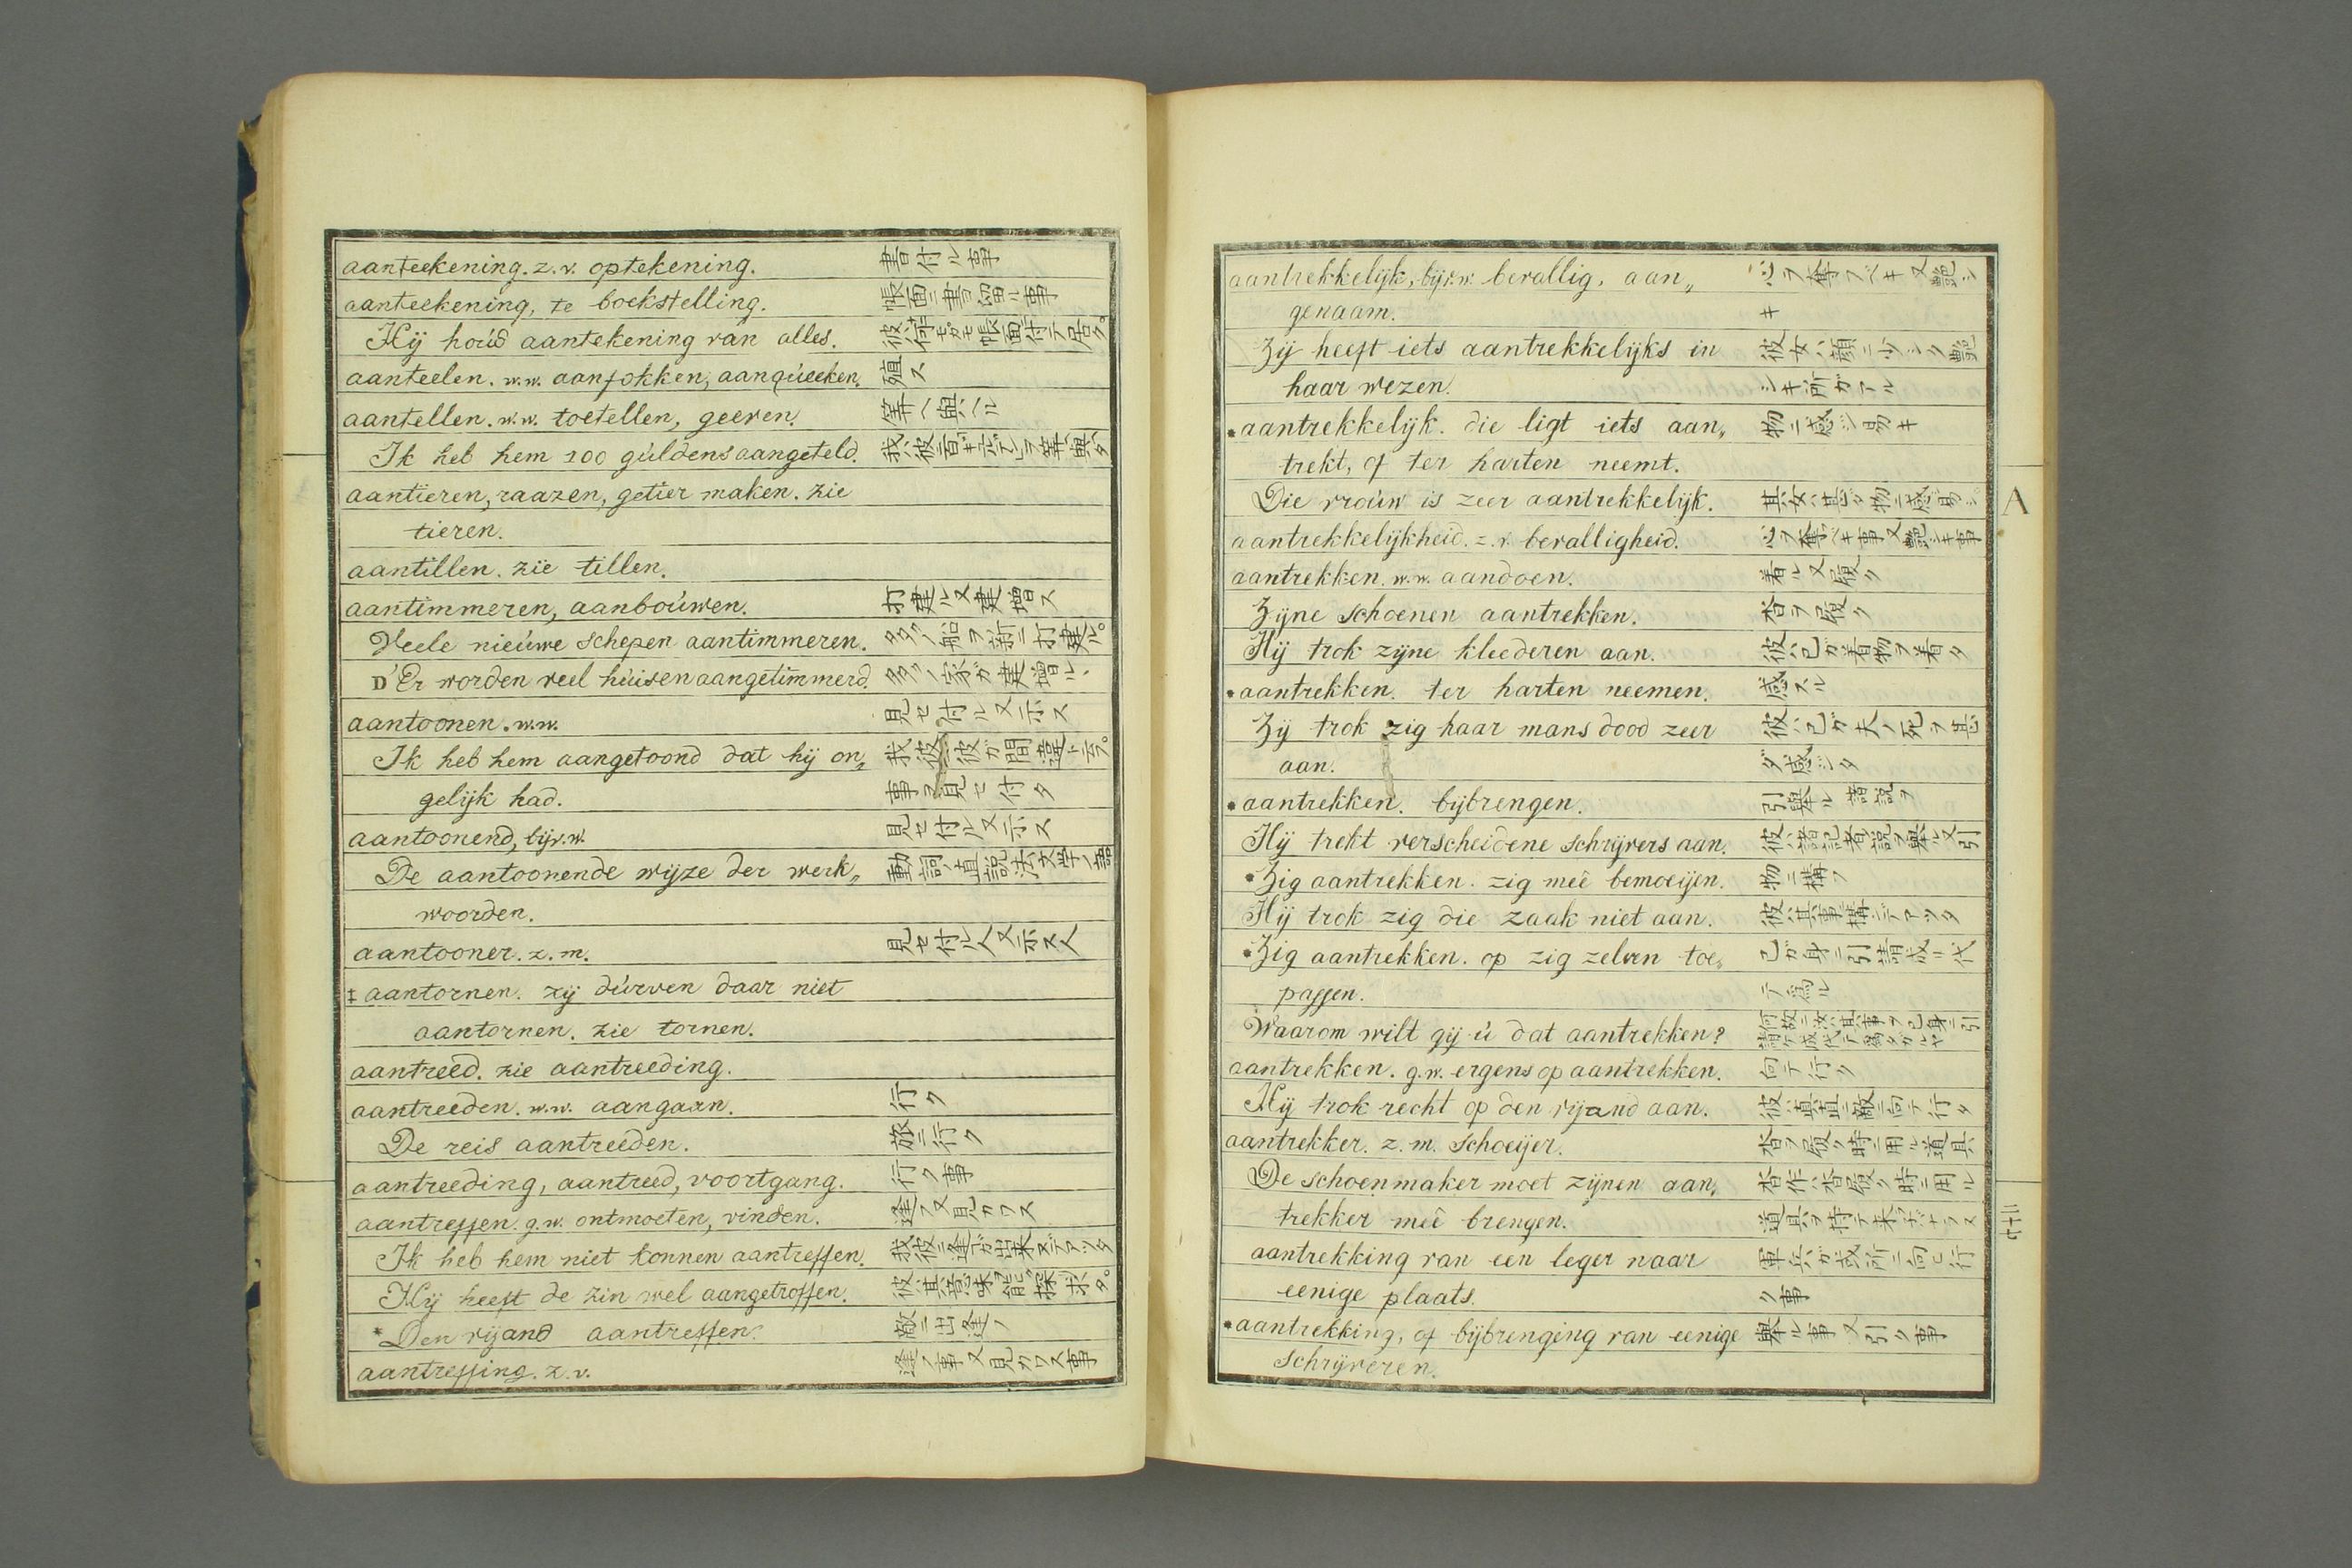 aanteekening. z.v. optekening. 書付ル事
aanteekening, te boekstelling. 帳面ニ書留ル事
Hij hoúd aantekening van alles.
aanteelen. w.w. aanfokken, aanqúeeken. 殖ス
aantellen. w.w. toetellen, geeven. 算ヘ與ヘル
Ik heb hem 100 gúldens aangeteld.
aantieren, raazen, getier maken. zie
tieren.
aantillen. zie tillen.
aantimmeren, aanboúwen. 打建ル又建増ス
Veele nieúwe schepen aantimmeren. 多ノ船ヲ新ニ打建ル。
D'Er worden veel húisen aangetimmerd. 多ノ家ガ建増ル
aantoonen. w.w. 見セ付ル又示ス
Ik heb hem aangetoond dat hij on„ 我彼ニ彼ガ間違ト云フ。
gelijk had. 事ヲ見セ付タ
aantoonend, bijv.w. 見セ付ル又示ス
De aantoonende wijze der werk„ 動詞ノ直説法文学ノ語
woorden.
aantooner. z.m. 見セ付ル人又示ス人
‡ aantornen. zij dúrven daar niet
aantornen. zie tornen.
aantreed. zie aantreeding.
aantreeden. w.w. aangaan. 行ク
De reis aantreeden. 旅ニ行ク
aantreeding, aantreed, voortgang. 行ク事
aantreffen. g.w. ontmoeten, vinden. 逢フ又見カワス
Ik heb hem niet konnen aantreffen. 我彼ニ逢フガ出来ズアツタ
Hij heeft de zin wel aangetroffen.
* Den vijand aantreffen. 敵ニ出逢フ
aantreffing. z.v. 逢フ事又見カワス事
aantrekkelijk, bijv.w. bevallig, aan„ 心ヲ奪フベキ又艶シ
genaam. キ
Zij heeft iets aantrekkelijks in 彼女ハ顔ニ少シク艶
haar wezen. シキ所ガアル
* aantrekkelijk. die ligt iets aan„ 物ニ感ジ易キ
trekt, of ter harten neemt.
Die vroúw is zeer aantrekkelijk. 其女ハ甚ダ物ニ感易シ。
aantrekkelijkheid. z.v. bevalligheid. 心ヲ奪ベキ事又艶シキ事
aantrekken. w.w. aandoen. 着ル又履ク
Zijne schoenen aantrekken. 沓ヲ履ク
Hij trok zijne kleederen aan. 彼ハ己ガ着物ヲ着タ
* aantrekken. ter harten neemen. 感スル
Zij trok zig haar mans dood zeer 彼ハ己ガ夫ノ死ヲ甚
aan. ダ感ジタ
* aantrekken. bijbrengen. 引擧ル諸説ヲ
Hij trekt verscheidene schrijvers aan. 彼ハ諸記者ノ説ヲ擧ル又引
* Zig aantrekken. zig meê bemoeijen. 物ニ構フ
Hij trok zig die zaak niet aan.
* Zig aantrekken. op zig zelven toe„ 己ガ身ニ引請成リ代
passen. テ爲ル
Waarom wilt gij ú dat aantrekken?
aantrekken. g.w. ergens op aantrekken. 向テ行ク
Hij trok recht op den vijand aan. 彼ハ真直ニ敵ニ向テ行タ
aantrekker. z.m. schoeijer. 沓ヲ履ク時ニ用ル道具
De schoenmaker moet zijnen aan„ 沓作ハ沓履ク時ニ用ル
trekker meê brengen. 道具ヲ持テ来ネバナラヌ
aantrekking van een leger naar 軍兵ガ或所ニ向ヒ行
eenige plaats. ク事
* aantrekking, of bijbrenging van eenige 擧ル事又引ク事
schrijveren.
A
二十七